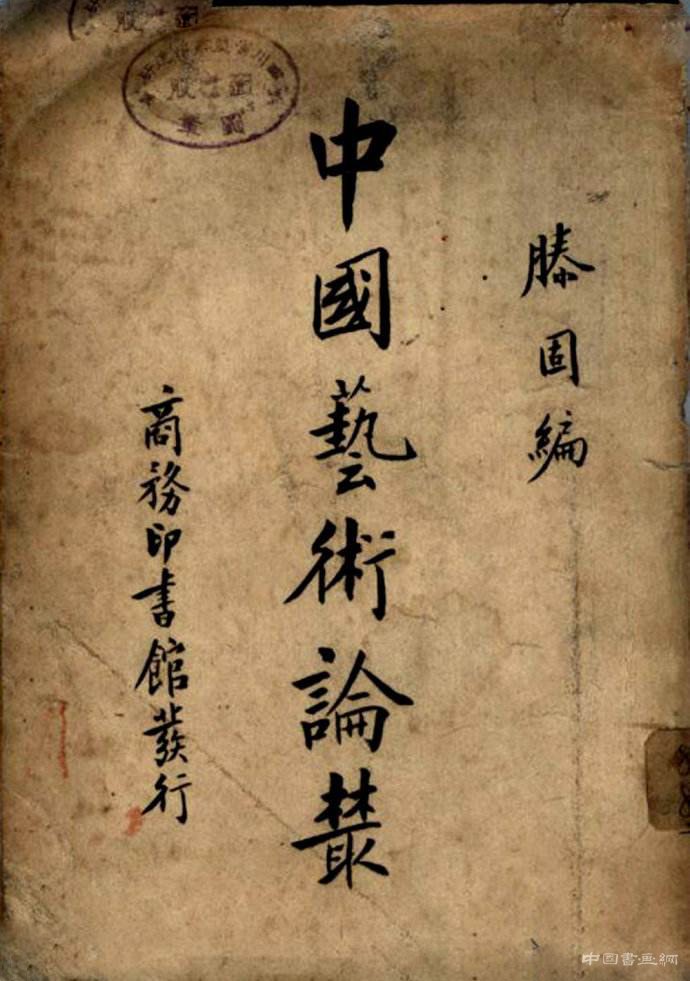 滕固編
中國藝術論叢
商務印書館發行
中国書画網